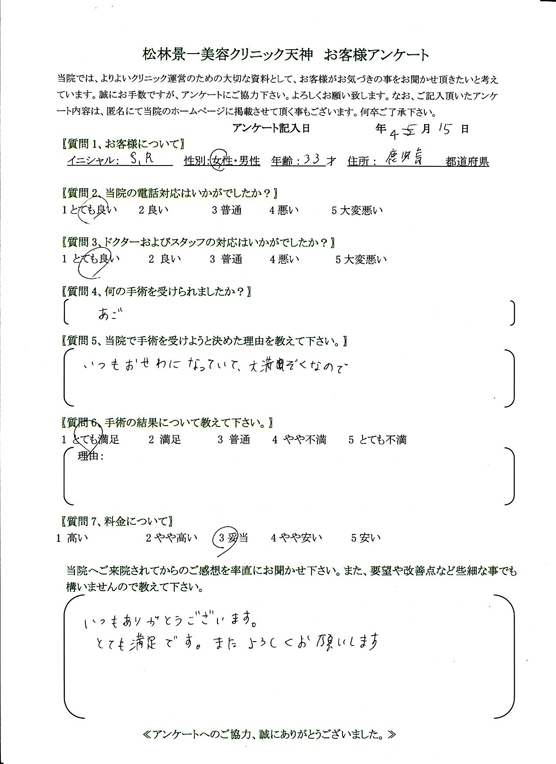 松林景一美容クリニック天神　お客様アンケート
当院では、よりよいクリニック運営のための大切な資料として、お客様がお気づきの事をお聞かせ頂きたいと考え
ています。誠にお手数ですが、アンケートにご協力下さい。よろしくお願い致します。なお、ご記入頂いたアンケ
ート内容は、匿名にて当院のホームページに掲載させて頂く事もございます。何卒ご了承下さい。
アンケート記入日　　年　5月 15日
〖質問1、お客様について〗
イニシャル：S,R　性別：女性・男性　年齢：33才　住所：鹿児島　都道府県
〖質問2、当院の電話対応はいかがでしたか？〗
1 とても良い　2 良い　3 普通　4 悪い　5 大変悪い
〖質問3、ドクターおよびスタッフの対応はいかがでしたか？〗
1 とても良い　2 良い　3 普通　4 悪い　5 大変悪い
〖質問4、何の手術を受けられましたか？〗
あご
〖質問5、当院で手術を受けようと決めた理由を教えて下さい。〗
いつもおせわになっていて、大満ぞくなので
〖質問6、手術の結果について教えて下さい。〗
1 とても満足　2 満足　3 普通　4 やや不満　5 とても不満
理由：
〖質問7、料金について〗
1 高い　2 やや高い　3 妥当　4 やや安い　5 安い
当院へご来院されてからのご感想を率直にお聞かせ下さい。また、要望や改善点など些細な事でも
構いませんので教えて下さい。
いつもありがとうございます。
とても満足です。またよろしくお願いします
≪アンケートへのご協力、誠にありがとうございました。≫